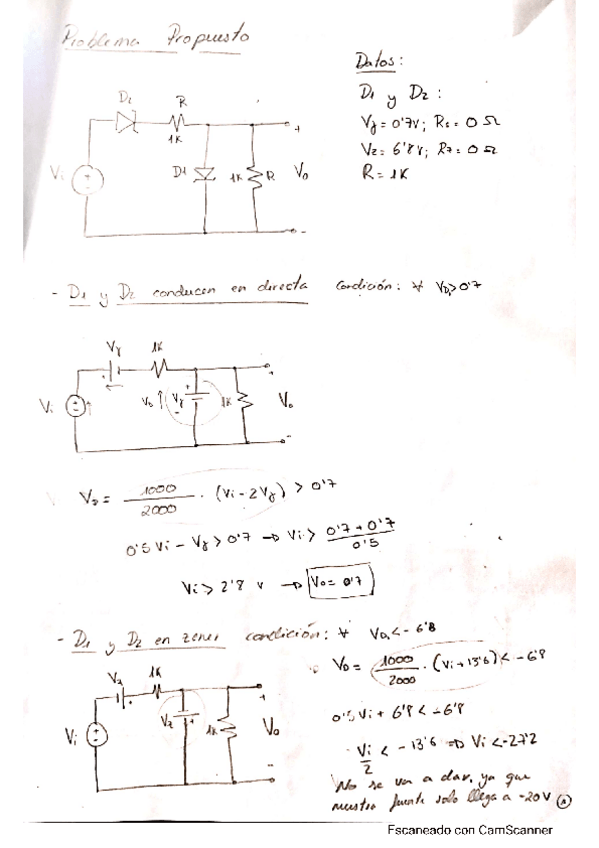 Problema Propuesto
Datos:
D1 y D2:
Vγ = 0'7V; Rs = 0 Ω
Vz = 6'8V; Rz = 0 Ω
R = 1K
D2
R
1K
Vi
D1
1K
R
+
Vo
-
- D1 y D2 conducen en directa
Condición: ∀ VD1>0'7
Vγ
1K
+
Vi
Vo
+
Vγ
-
1K
Vo
-
Vo = 1000/2000 · (Vi - 2Vγ) > 0'7
0'5 Vi - Vγ > 0'7 → Vi > 0'7 + 0'7/0'5
Vi > 2'8 V → Vo = 0'7
- D1 y D2 en zener
condición: ∀ VD1 < - 6'8
Vz
1K
+
Vi
Vz
+
1K
Vo
-
Vo = 1000/2000 · (Vi + 13'6) < - 6'8
0'5 Vi + 6'8 < - 6'8
Vi/2 < - 13'6 ⇒ Vi < -27'2
No se va a dar, ya que
nuestra fuente solo llega a -20V
Escaneado con CamScanner